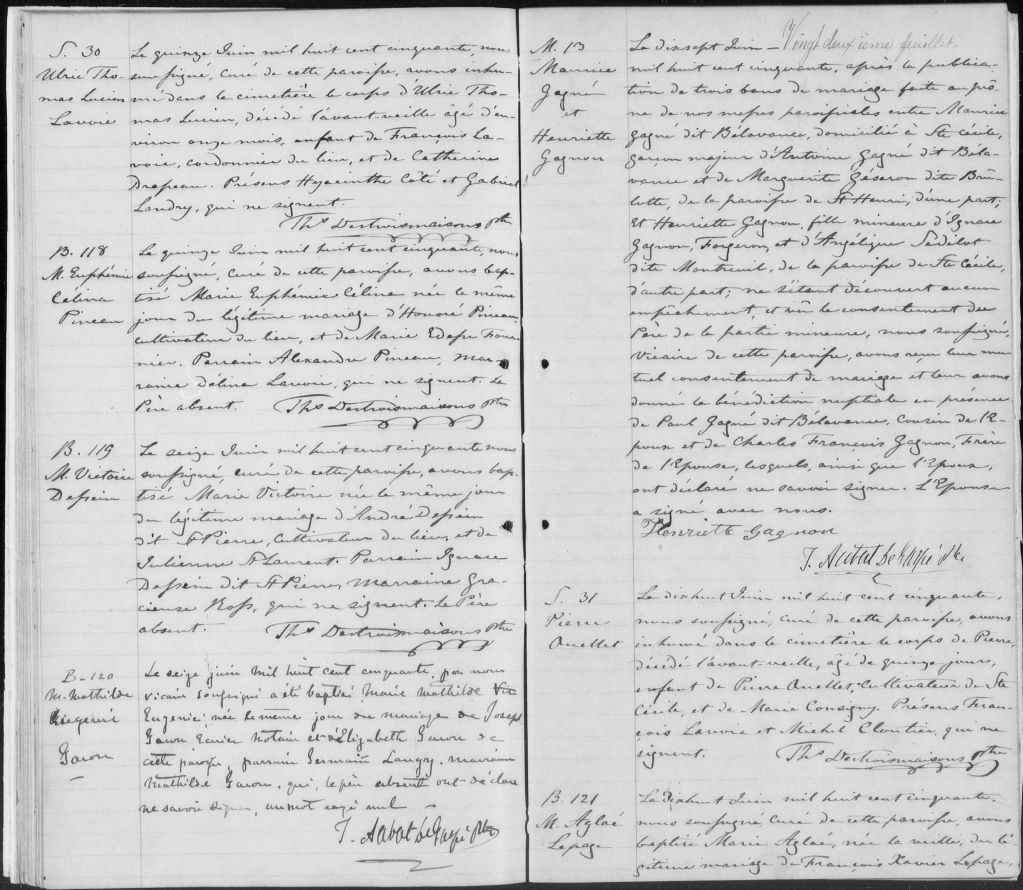 S. 30
Ulric Tho-
mas Lucien
Lavoie
Le quinze Juin mil huit cent cinquante, nous
soussigné, curé de cette paroisse, avons inhu-
mé dans le cimetière le corps d'Ulric Tho-
mas Lucien, décédé l'avant veille âgé d'en-
viron onze mois, enfant de François La-
voie, cordonnier du lieu, et de Catherine
Drapeau. Présens Hyacinthe Côté et Gabriel
Landry, qui ne signent.
Ths Destroismaisons ptre
B. 118
M. Euphémie
Célina
Pineau
Le quinze Juin mil huit cent cinquante, nous
soussigné, curé de cette paroisse, avons bap-
tisé Marie Euphémie Célina née le même
jour du légitime mariage d'Honoré Pineau,
cultivateur du lieu, et de Marie Edesse Four-
nier. Parrain Alexandre Pineau, mar-
raine Délina Lavoie, qui ne signent. Le
Père absent. Ths Destroismaisons ptre
B. 119
M. Victoire
Dessein
Le seize Juin mil huit cent cinquante nous
soussigné, curé de cette paroisse, avons bap-
tisé Marie Victoire née le même jour
du légitime mariage d'André Dessein
dit St Pierre, cultivateur du lieu, et de
Julienne St Laurent. Parrain Ignace
Dessein dit St Pierre, Marraine Gra-
cieuse Ross, qui ne signent. Le Père
absent. Ths Destroismaisons ptre
B - 120
M. Mathilde
Eugénie
Garon
Le seize juin mil huit cent cinquante, par nous
vicaire soussigné a été baptisé Marie Mathilde
Eugenie, née le même jour du mariage de Joseph
Garon Ecuier Notaire et d'Elizabeth Garon de
cette paroisse, parrain Germain Langy, marraine
Mathilde Garon, qui, le père absent ont déclaré
ne savoir signer, un mot rayé nul -
T. Aubert DeGaspé Ptre
Vingt deuxième feuillet.
M. 13
Maurice
Gagné
et
Henriette
Gagnon
Le dixsept Juin -
mil huit cent cinquante, après la publica-
tion de trois bans de mariage faite au prô-
ne de nos messes paroissiales entre Maurice
Gagné dit Bélavance, domicilié à Ste Cécile,
garçon majeur d'Antoine Gagné dit Béla-
vance et de Marguerite Géseron dite Brû-
lotte, de la paroisse de St Henri, d'une part;
Et Henriette Gagnon, fille mineure d'Ignace
Gagnon, Forgeron, et d'Angélique Sédilot
dite Montreuil, de la paroisse de Ste Cécile,
d'autre part; ne s'étant découvert aucun
empêchement, et vû le consentement du
Père de la partie mineure, nous soussigné,
Vicaire de cette paroisse, avons reçu leur mu-
tuel consentement de mariage et leur avons
donné la bénédiction nuptiale en présence
de Paul Gagné dit Bélavance, cousin de l'E-
poux et de Charles François Gagnon, Frère
de l'Epouse, lesquels, ainsi que l'Epoux,
ont déclaré ne savoir signer. L'Epouse
a signé avec nous.
Henriette Gagnon
T. Aubert DeGaspé Ptre.
S. 31
Pierre
Ouellet
Le dixhuit Juin mil huit cent cinquante,
nous soussigné, curé de cette paroisse, avons
inhumé dans le cimetière le corps de Pierre,
décédé l'avant-veille, âgé de quinze jours,
enfant de Pierre Ouellet, Cultivateur de Ste
Cécile, et de Marie Consigny. Présens Fran-
çois Lavoie et Michel Cloutier, qui ne
signent. Ths Destroismaisons ptre
B. 121
M. Aglaé
Lepage
Le dixhuit Juin mil huit cent cinquante,
nous soussigné curé de cette paroisse, avons
baptisé Marie Aglaé, née la veille, du lé-
gitime mariage de François Xavier Lepage,